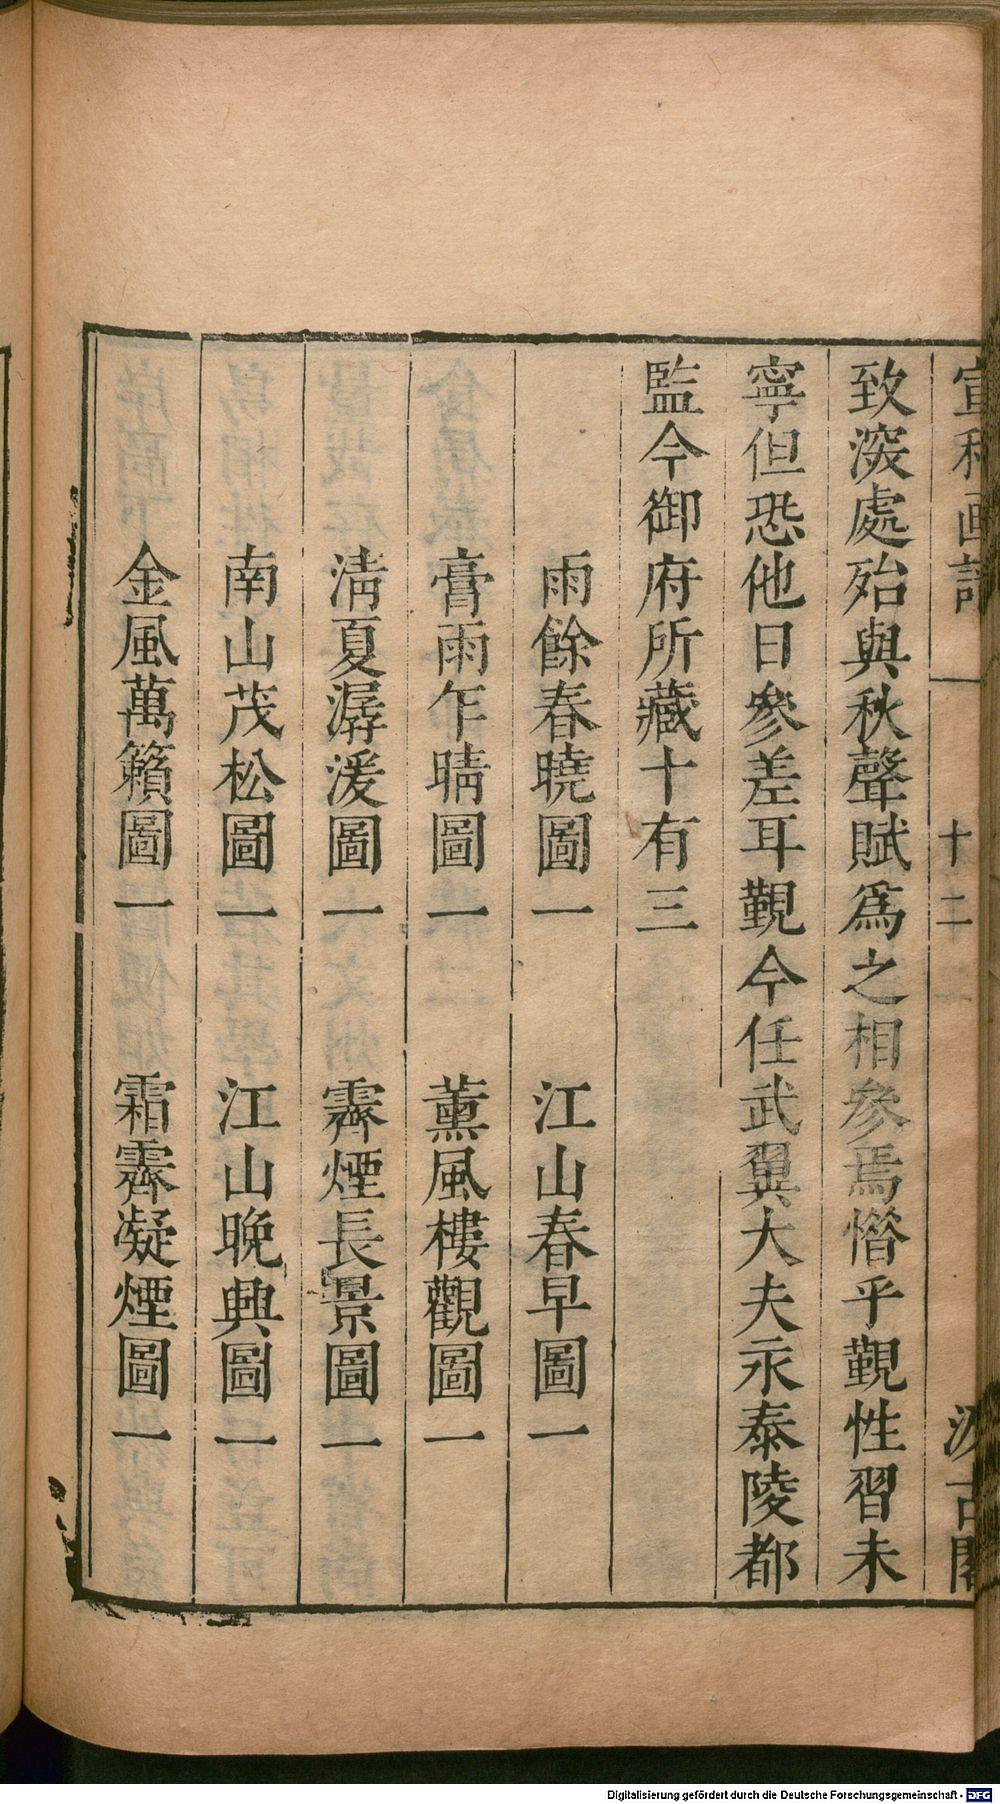 宣和画譜 十二 汲古閣
致深處殆與秋聲賦爲之相參焉惜乎覿性習未
寧但恐他日參差耳覿今任武翼大夫永泰陵都
監今御府所藏十有三
雨餘春曉圖一 江山春早圖一
膏雨乍晴圖一 薰風樓觀圖一
淸夏潺湲圖一 霽煙長景圖一
南山茂松圖一 江山晚興圖一
金風萬籟圖一 霜霽凝煙圖一
Digitalisierung gefördert durch die Deutsche Forschungsgemeinschaft - DFG